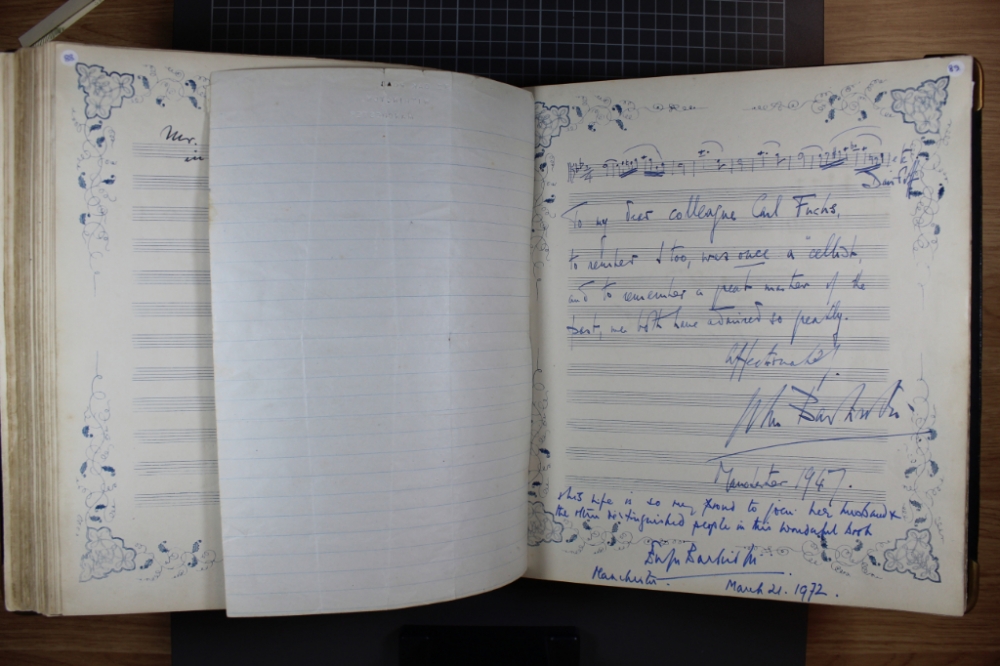 88
Mr.
in
89
Davidoff
To my dear colleague Carl Fuchs,
to remember I too, was once a 'cellist,
and to remember a great master of the
past, we both have admired so greatly.
Affectionately,
John Barbirolli
Manchester 1947.
This wife is so very proud to join her husband &
the other distinguished people in this wonderful book
Evelyn Barbirolli
Manchester.
March 21. 1972.